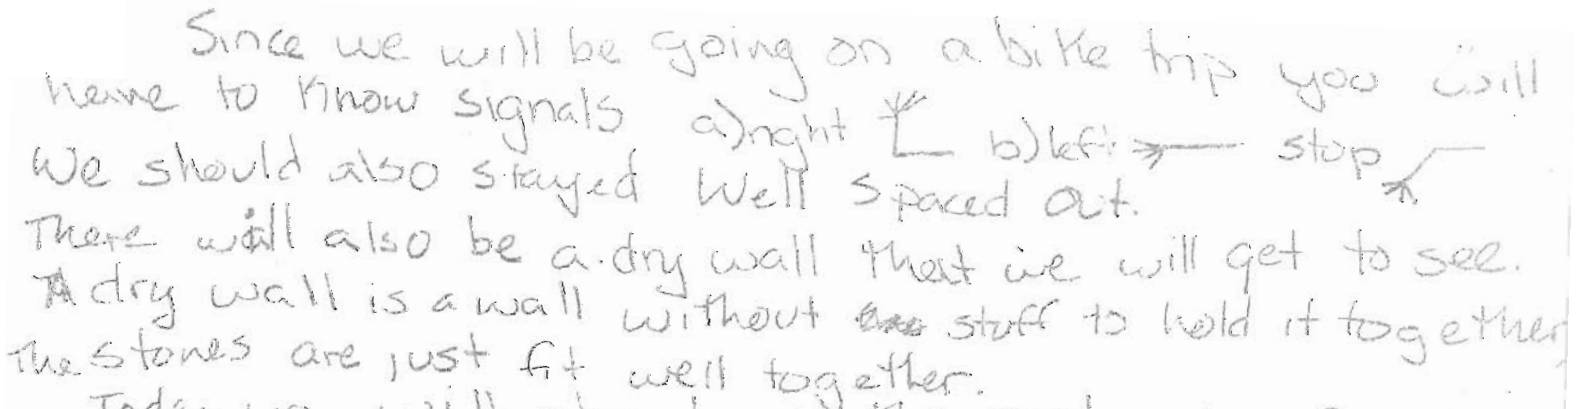 Since we will be going on a bike trip you will
have to know signals a) right b) left stop
We should also stayed well spaced out.
There will also be a dry wall that we will get to see.
A dry wall is a wall without stuff to hold it together,
The stones are just fit well together.